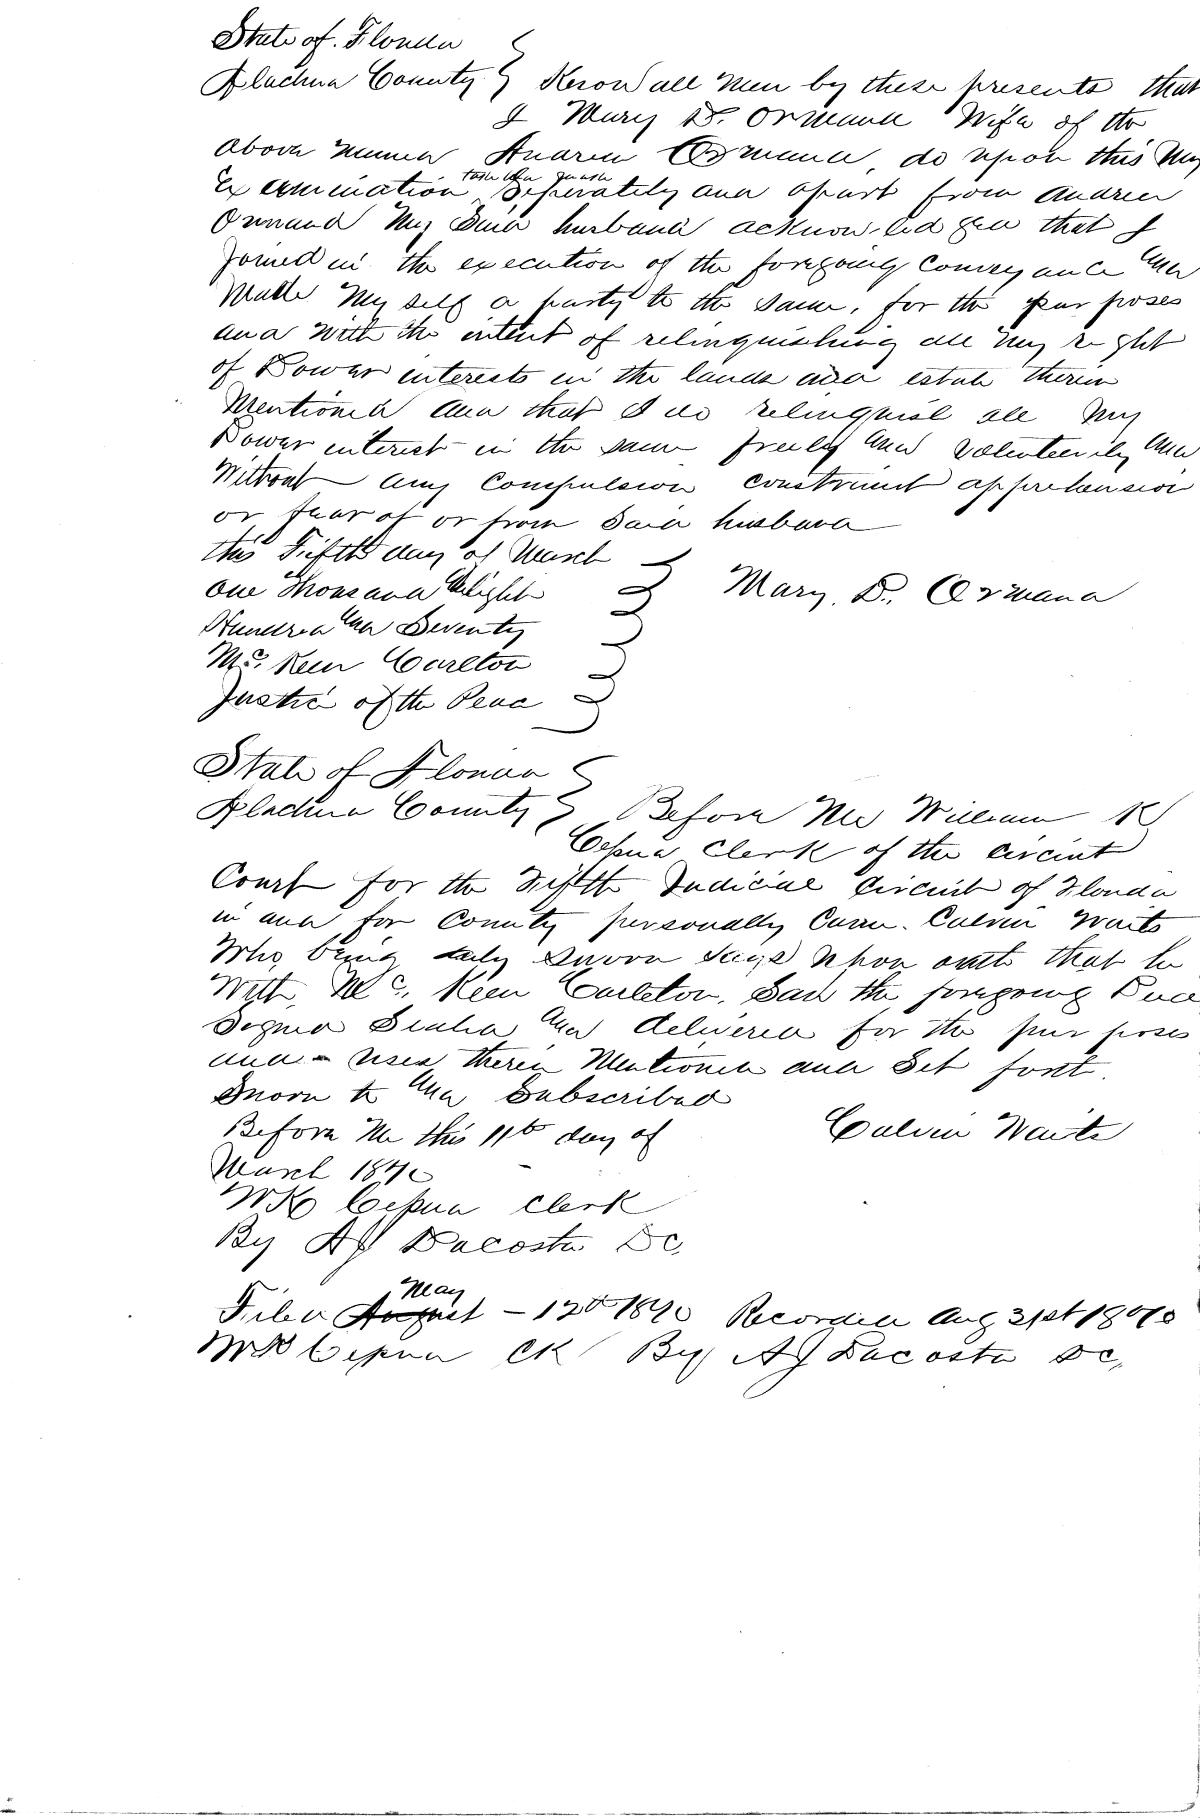 State of Florida
Alachua County } Know all Men by these presents that
I Mary D. Ormand Wife of the
above named Andrew Ormand do upon this My
Examination, taken and made Seperately and apart from Andrew
Ormand My Said husband acknowledged that I
Joined in the execution of the foregoing Conveyance and
Made My self a party to the same, for the purposes
and with the intent of relinquishing all my right
of Dower interests in the lands and estate therein
Mentioned and that I do relinquish all My
Dower interest in the same freely and volunteerily and
Without any Compulsion constraint apprehension
or fear of or from Said husband
this Fifth day of March
one Thousand Eight
Hundred and Seventy
Mary. D. Ormand
Mc. Keen Carlton
Justice of the Peace
State of Florida
Alachua County } Before Me William K
Cessna Clerk of the circuit
Court for the Fifth Judicial Circuit of Florida
in and for County personally Came Calvin Waits
Who, being duly sworn says upon oath that he
With Mc. Keen Carleton, Saw the foregoing Deed
Signed Sealed and delivered for the purposes
and - uses therein Mentioned and Set forth.
Sworn to and Subscribed
Before Me this 11th day of
March 1870
Calvin Waits
WK Cessna Clerk
By AJ Dacosta DC,
Filed August May - 12th 1870 Recorded Aug 31st 1870
WK Cessna CK By AJ Dacosta DC,